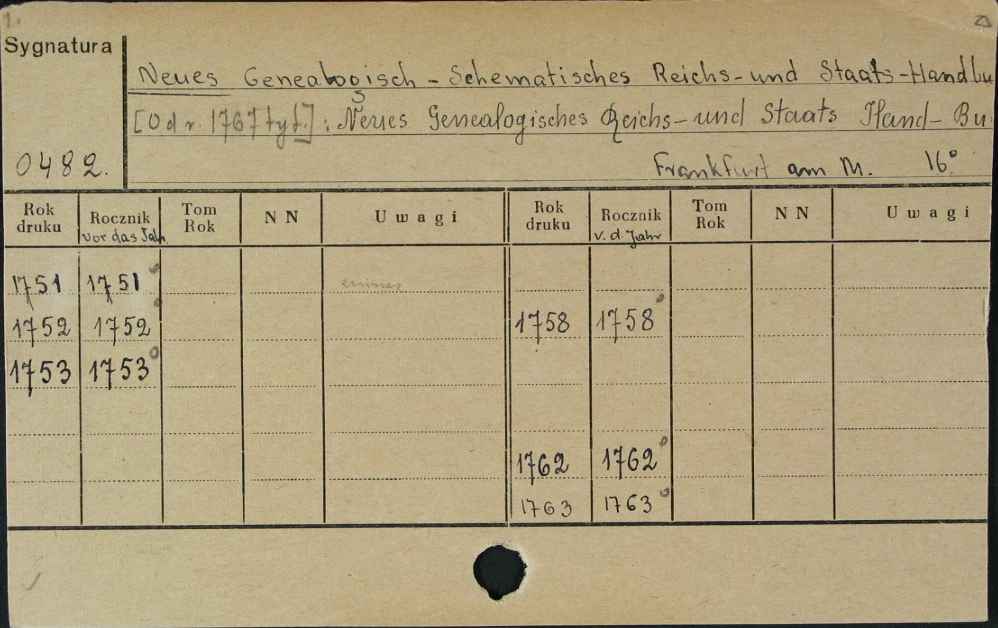 1.
Sygnatura
Neues Genealogisch - Schematisches Reichs- und Staats-Handbu
[Od r. 1767 tyt.]: Neues Genealogisches Reichs- und Staats Hand- Bu
0482. Frankfurt am M. 16°
Rok druku Rocznik vor das Jahr Tom Rok N N Uwagi Rok druku Rocznik v. d. Jahr Tom Rok N N Uwagi
1751 1751
1752 1752 1758 1758
1753 1753
1762 1762
1763 1763